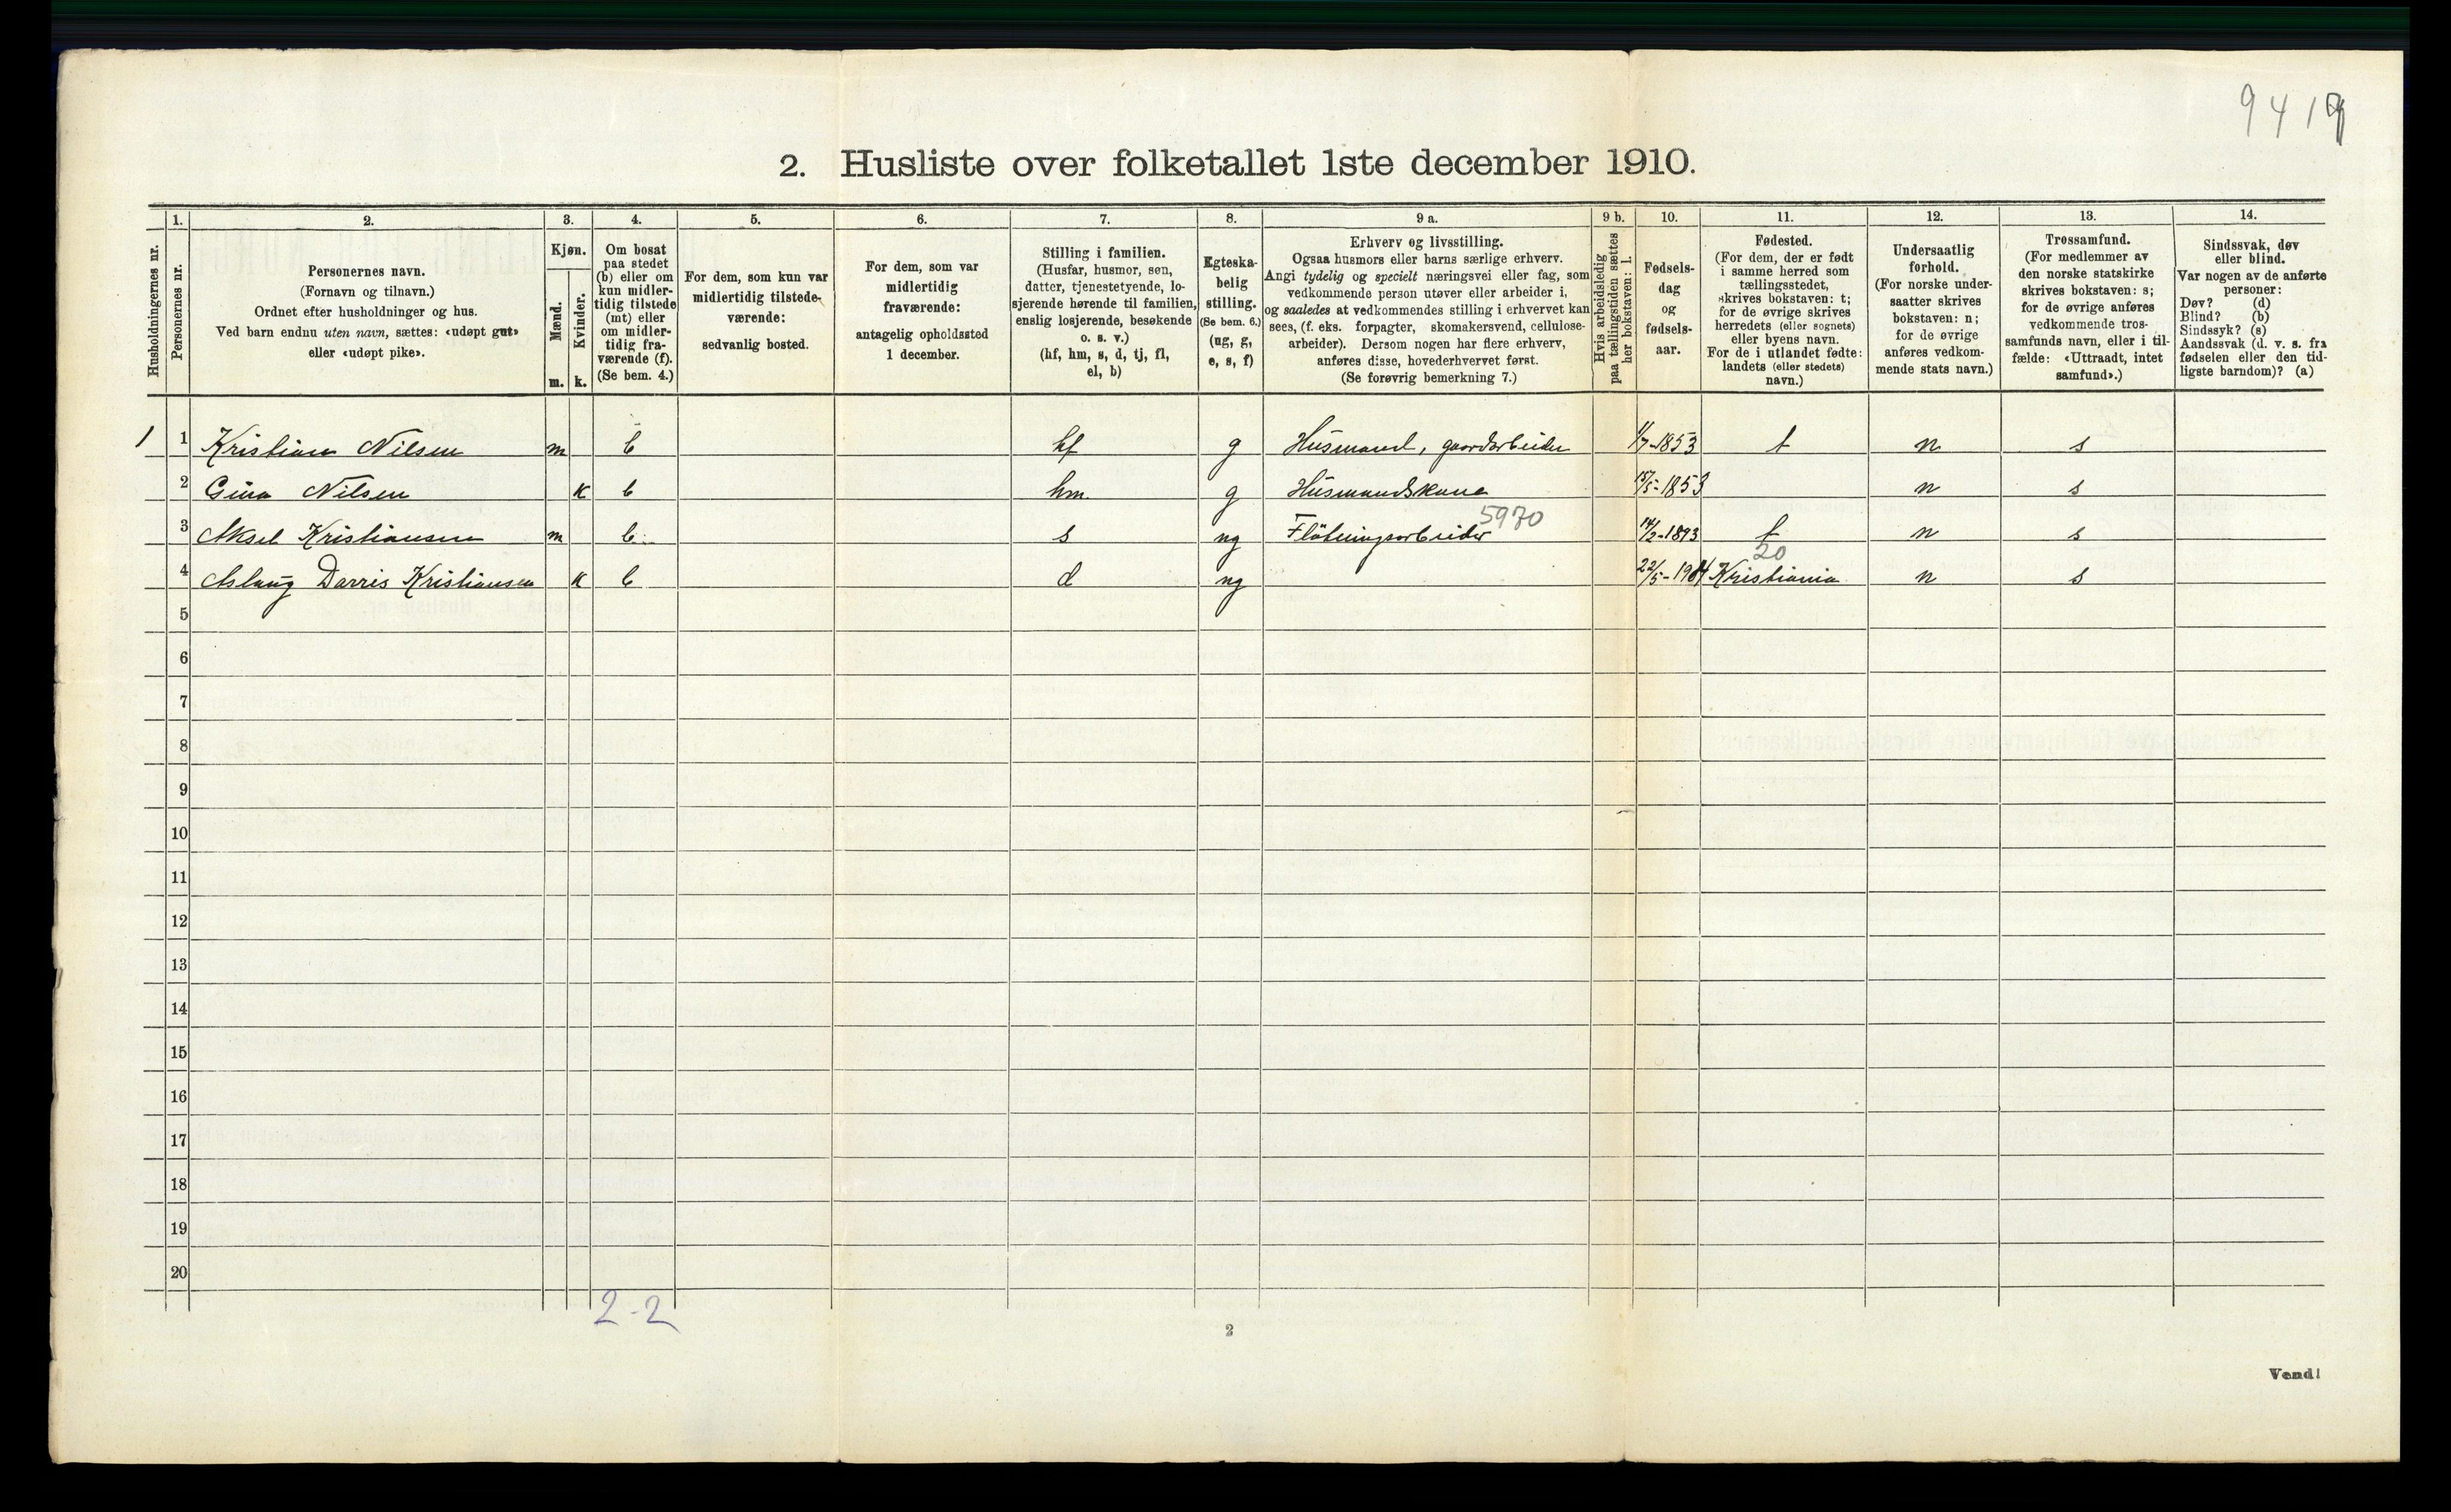 9419
2. Husliste over folketallet 1ste december 1910.
Husholdningernes nr.
1.
Personernes nr.
2.
Personernes navn.
(Fornavn og tilnavn.)
Ordnet efter husholdninger og hus.
Ved barn endnu uten navn, sættes: «udøpt gut»
eller «udøpt pike».
3.
Kjøn.
Mænd.
Kvinder.
m. k.
4.
Om bosat
paa stedet
(b) eller om
kun midler-
tidig tilstede
(mt) eller
om midler-
tidig fra-
værende (f).
(Se bem. 4.)
5.
For dem, som kun var
midlertidig tilstede-
værende:
sedvanlig bosted.
6.
For dem, som var
midlertidig
fraværende:
antagelig opholdssted
1 december.
7.
Stilling i familien.
(Husfar, husmor, søn,
datter, tjenestetyende, lo-
sjerende hørende til familien,
enslig losjerende, besøkende
o. s. v.)
(hf, hm, s, d, tj, fl,
el, b)
8.
Egteska-
belig
stilling.
(Se bem. 6.)
(ug, g,
e, s, f)
9 a.
Erhverv og livsstilling.
Ogsaa husmors eller barns særlige erhverv.
Angi tydelig og specielt næringsvei eller fag, som
vedkommende person utøver eller arbeider i,
og saaledes at vedkommendes stilling i erhvervet kan
sees, (f. eks. forpagter, skomakersvend, cellulose-
arbeider). Dersom nogen har flere erhverv,
anføres disse, hovederhvervet først.
(Se forøvrig bemerkning 7.)
9 b.
Hvis arbeidsledig
paa tællingstiden sættes
her bokstaven: l.
10.
Fødsels-
dag
og
fødsels-
aar.
11.
Fødested.
(For dem, der er født
i samme herred som
tællingsstedet,
skrives bokstaven: t;
for de øvrige skrives
herredets (eller sognets)
eller byens navn.
For de i utlandet fødte:
landets (eller stedets)
navn.)
12.
Undersaatlig
forhold.
(For norske under-
saatter skrives
bokstaven: n;
for de øvrige
anføres vedkom-
mende stats navn.)
13.
Trossamfund.
(For medlemmer av
den norske statskirke
skrives bokstaven: s;
for de øvrige anføres
vedkommende tros-
samfunds navn, eller i til-
fælde: «Uttraadt, intet
samfund».)
14.
Sindssvak, døv
eller blind.
Var nogen av de anførte
personer:
Døv? (d)
Blind? (b)
Sindssyk? (s)
Aandssvak (d. v. s. fra
fødselen eller den tid-
ligste barndom)? (a)
1 1 Kristian Nilsen m b hf g Husmand, gaardarbeider 1/7-1853 t n s
2 Gina Nilsen k b hm g Husmandskone 15/5-1853 n s
5970
3 Aksel Kristiansen m b s ug Fløtningsarbeider 14/2-1893 t n s
20
4 Aslaug Dorris Kristiansen k b d ug 22/5-1904 Kristiania n s
5
6
7
8
9
10
11
12
13
14
15
16
17
18
19
20
2-2
2
Vend!